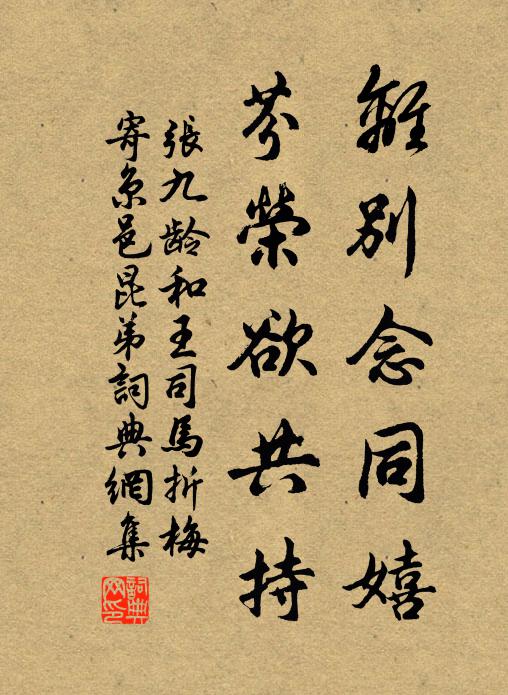 離別念同嬉
芬榮欲共持
張九龄和王司馬折梅
寄京邑昆弟詞典網集
詞典网印